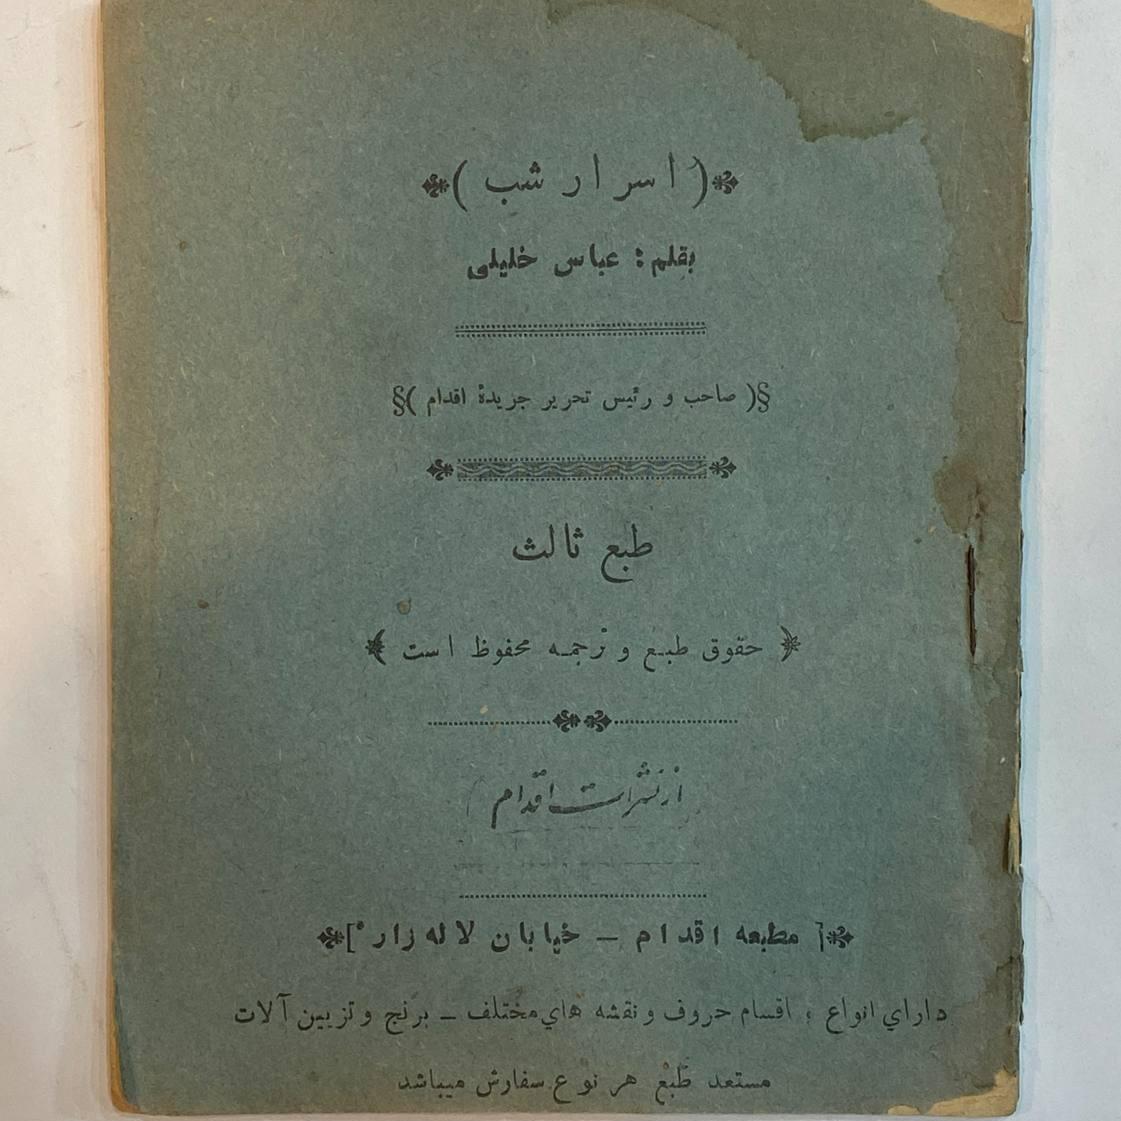 ( اسرار شب )
بقلم : عباس خلیلی
§( صاحب و رئیس تحریر جریدهٔ اقدام )§
طبع ثالث
حقوق طبع و ترجمه محفوظ است
از نشریات اقدام
[ مطبعه اقدام — خیابان لاله زار ]
دارای انواع ، اقسام حروف و نقشه های مختلف — برنج و تزیین آلات
مستعد طبع هر نوع سفارش میباشد